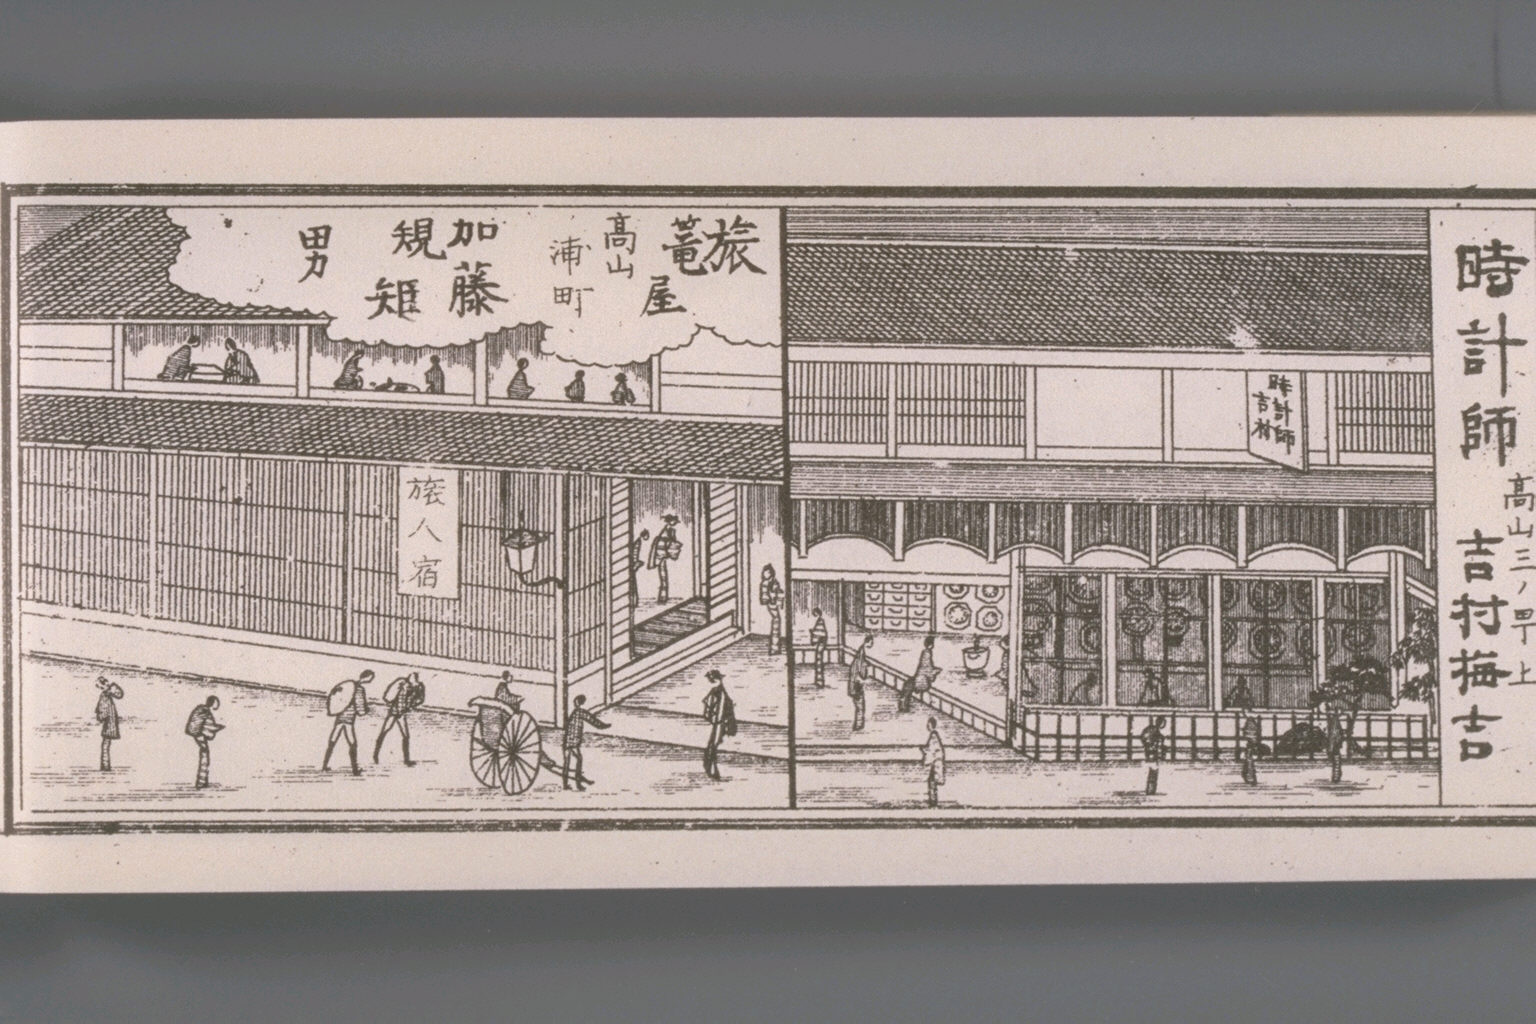 時計師
高山三ノ町上
吉村梅吉
時計師
吉村
旅篭屋
高山
浦町
加藤
規矩
男
旅人宿